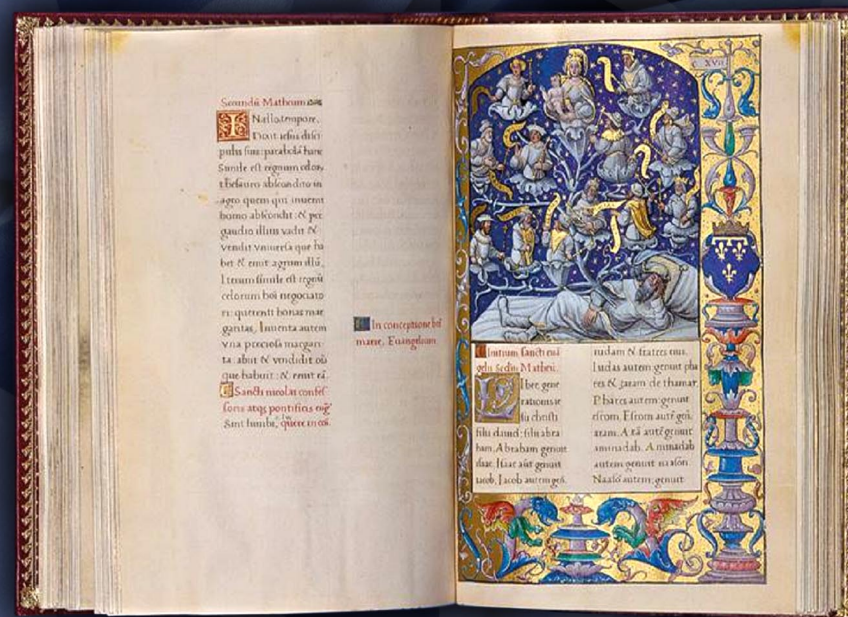 Secundū Matheum
IN illo tempore.
Dixit iesus disci
pulis suis: parabolā hanc
Simile est regnum celorū
thesauro abscondito in
agro quem qui inuenit
homo abscondit: & pre
gaudio illius vadit &
vendit vniuersa que ha
bet & emit agrum illū,
Iterum simile est regnū
celorum hoi negociato
ri: querenti bonas mar
garitas, Inuenta autem
vna preciosa margari
ta: abiit & vendidit oīa
que habuit: & emit eā.
Sancti nicolai confes
soris atqȝ pontificis
Sint lumbi, quere in
In conceptione
marie. Euangelium
C XVII
Initium sancti euā
gelii secūdū Matheū.
Liber gene
rationis ie
su christi
filii dauid: filii abra
ham, Abraham genuit
isaac. Isaac aūt genuit
iacob, Iacob autem
iudam & fratres eius.
Iudas autem genuit pha
res & zaram de thamar.
Phares autem genuit
esrom. Esrom autē
aram. Arā autē genuit
aminadab. Aminadab
autem genuit naason
Naasō autem genuit